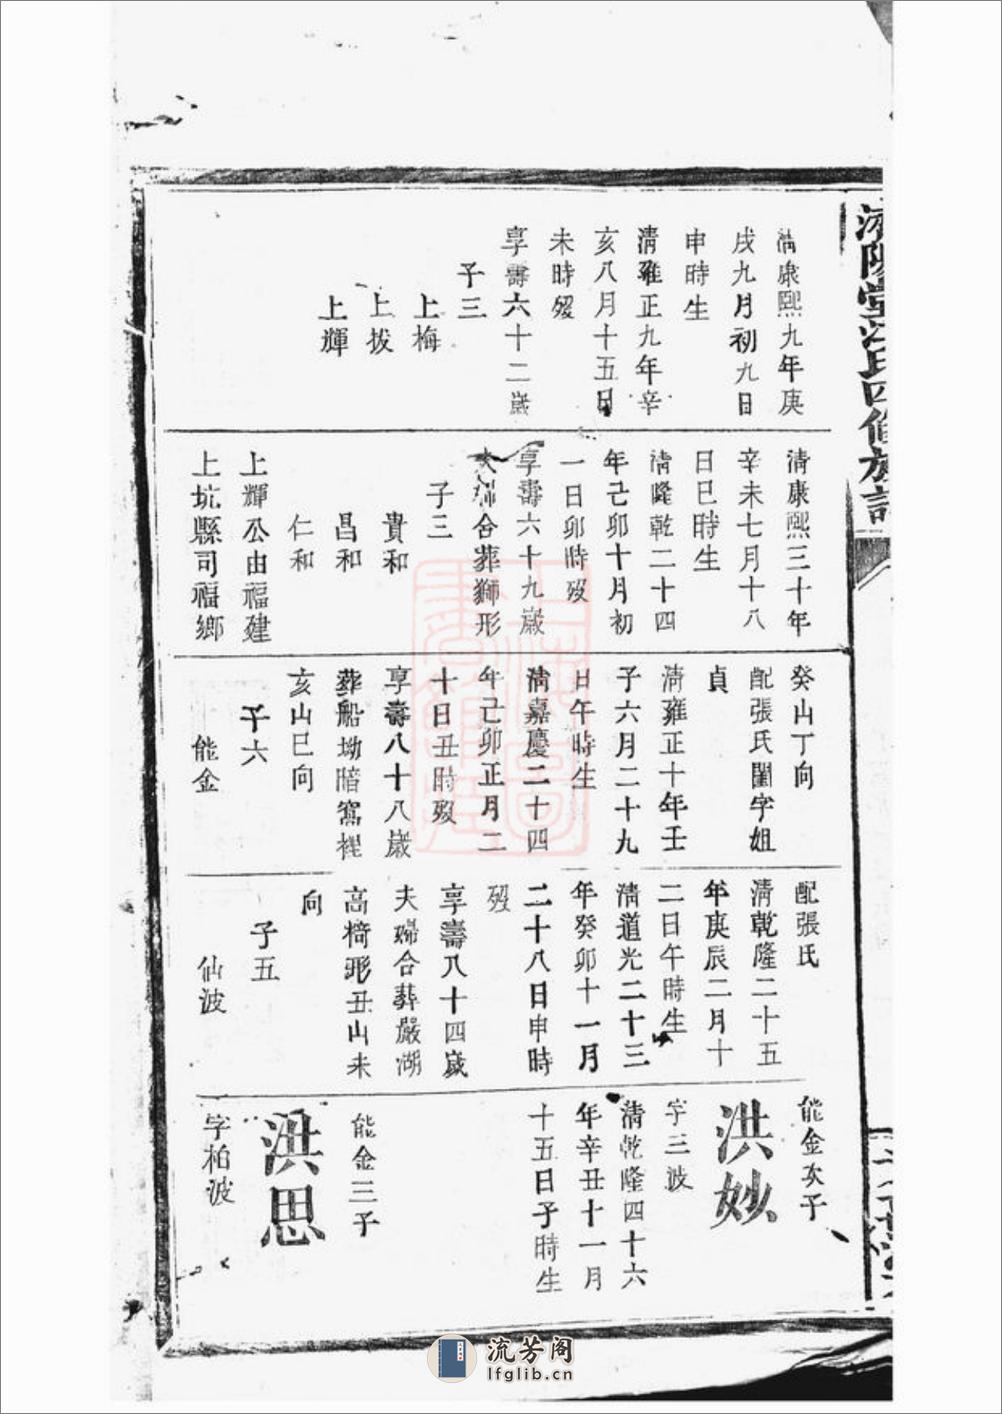 濟陽堂江氏四修族譜
清康熙九年庚
戌九月初九日
申時生
清雍正九年辛
亥八月十五日
未時歿
享壽六十二歲
子三
上梅
上拔
上輝
清康熙三十年
辛未七月十八
日巳時生
清隆乾二十四
年己卯十月初
一日卯時歿
享壽六十九歲
夫婦合葬獅形
子三
貴和
昌和
仁和
上輝公由福建
上坑縣司福鄉
癸山丁向
配張氏閨字姐
貞
清雍正十年壬
子六月二十九
日午時生
清嘉慶二十四
年己卯正月二
十日丑時歿
享壽八十八歲
葬船坳暗窩裡
亥山巳向
子六
能金
配張氏
清乾隆二十五
年庚辰二月十
二日午時生
清道光二十三
年癸卯十一月
二十八日申時
歿
享壽八十四歲
夫婦合葬嚴湖
高椅形丑山未
向
子五
仙波
能金次子
洪妙
字三波
清乾隆四十六
年辛丑十一月
十五日子時生
能金三子
洪思
字柏波
流芳阁
lfglib.cn